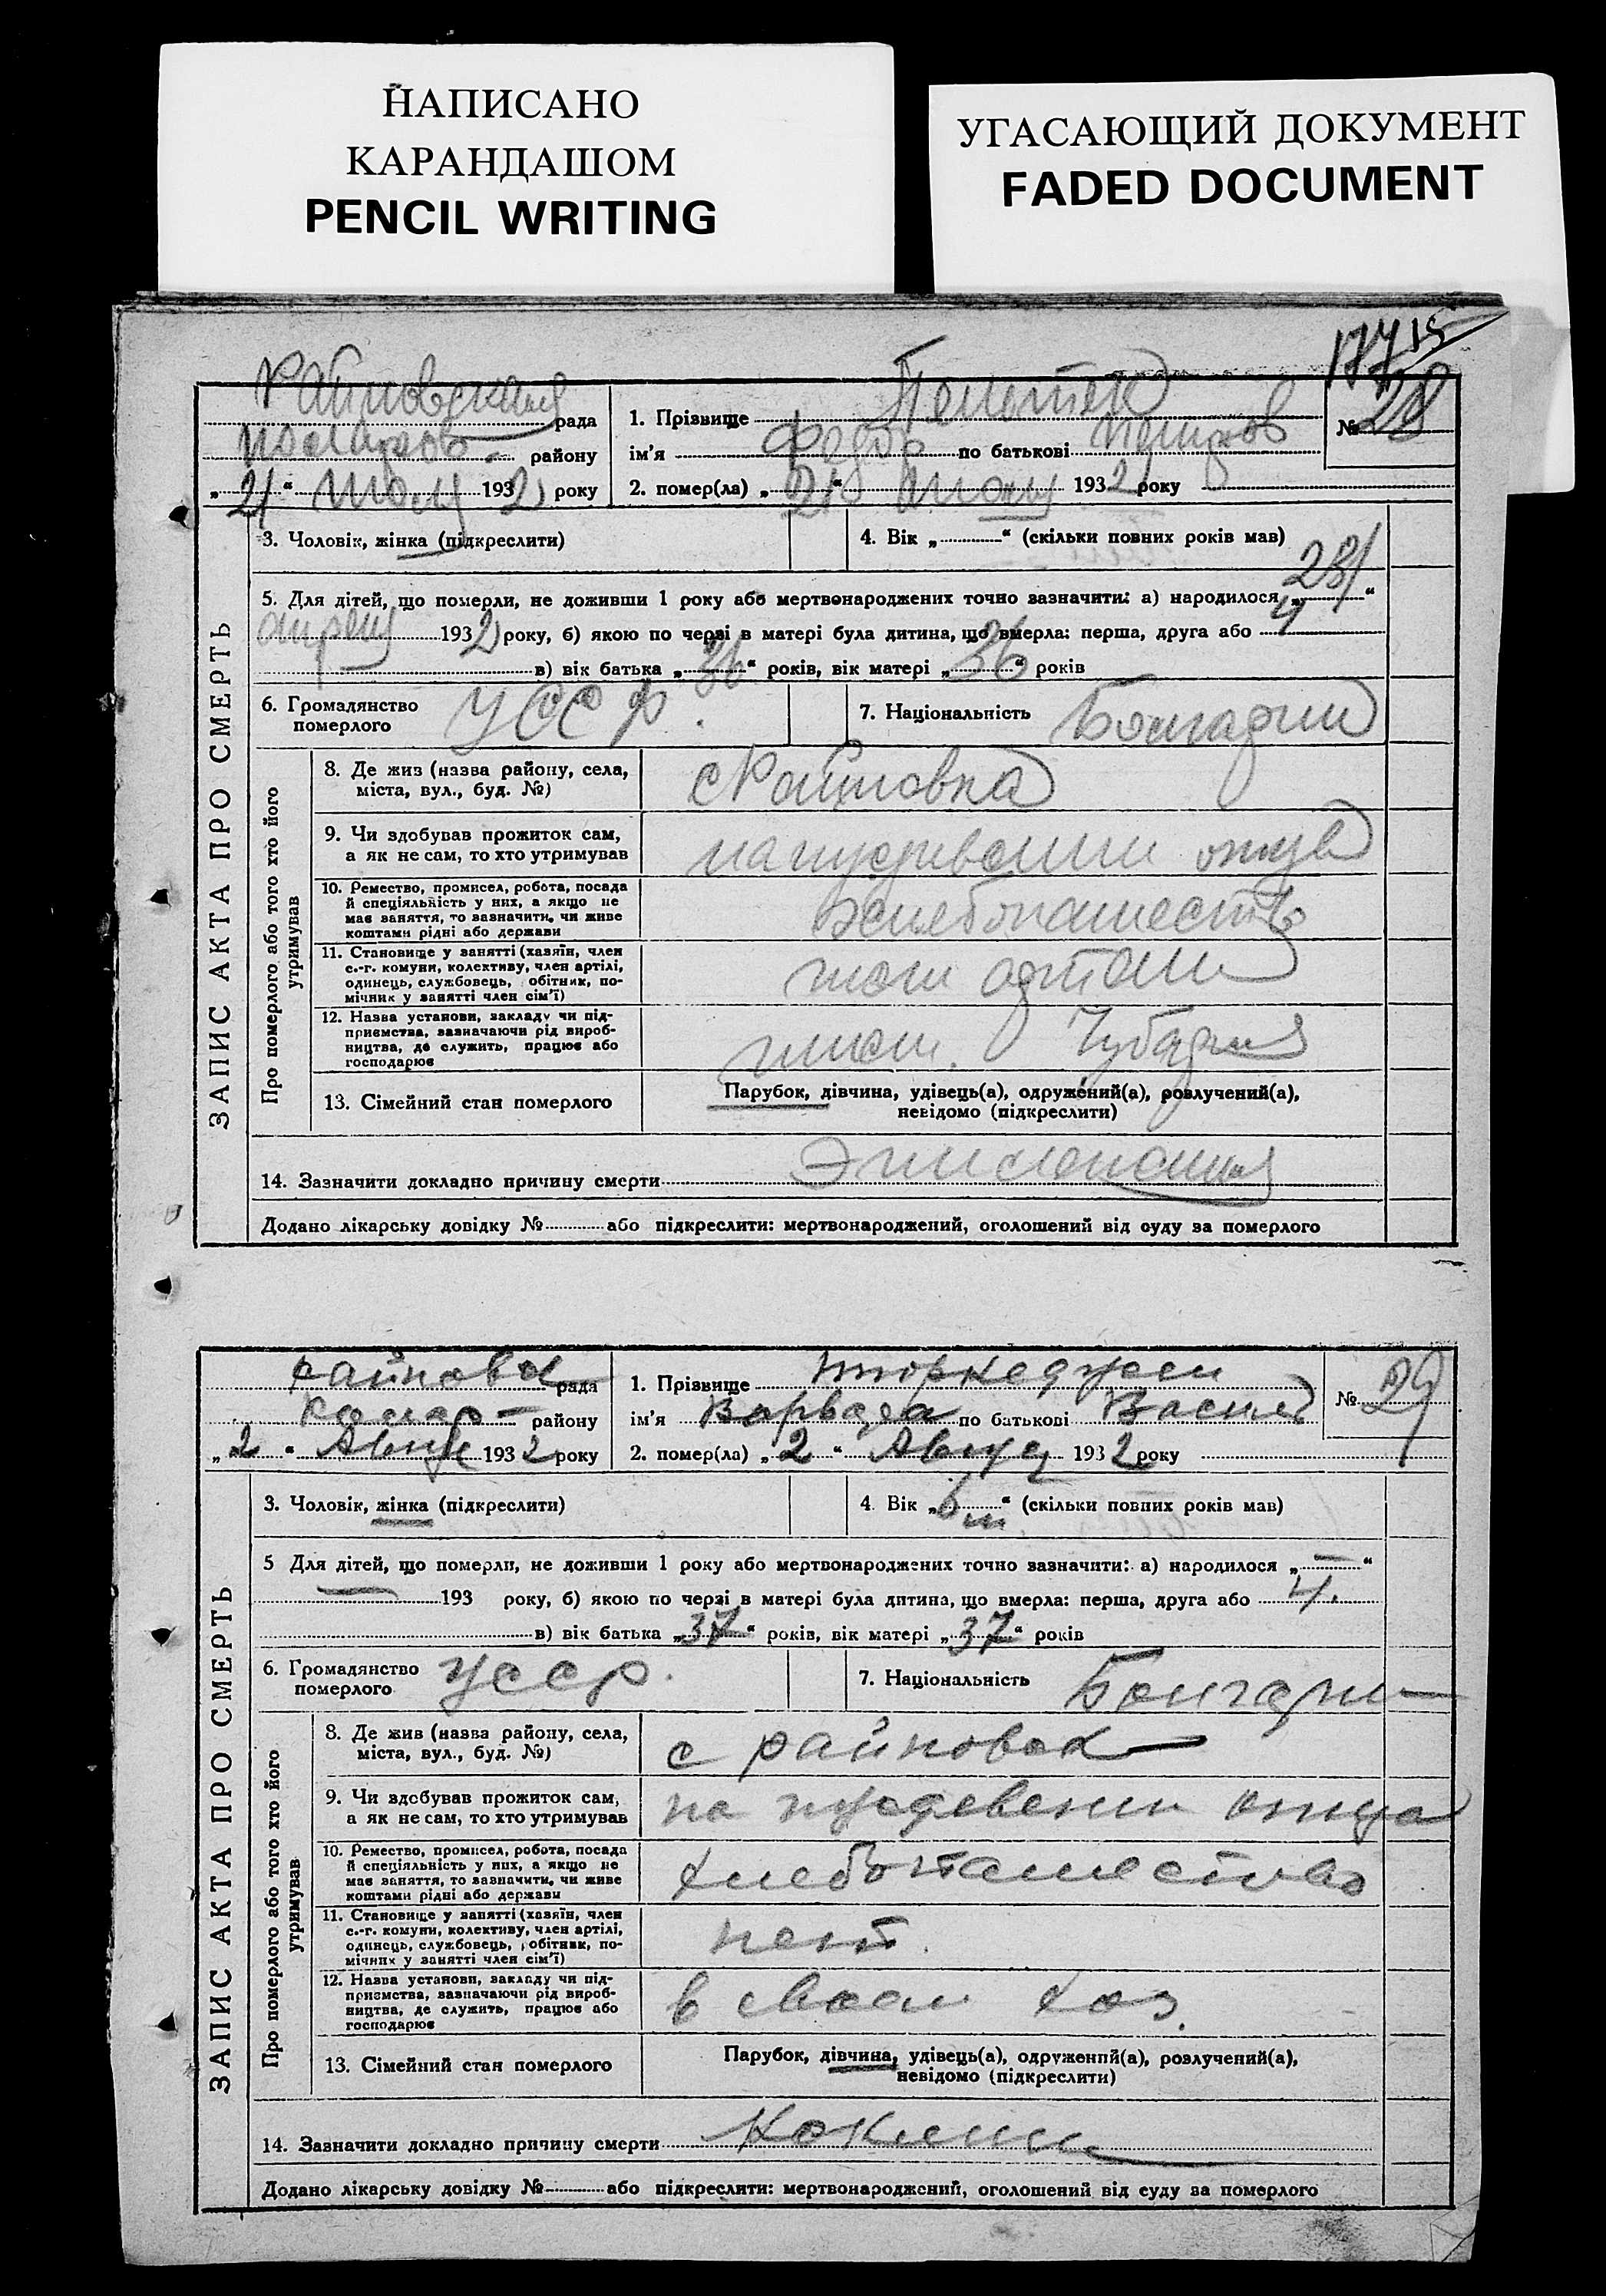 НАПИСАНО
КАРАНДАШОМ
PENCIL WRITING
УГАСАЮЩИЙ ДОКУМЕНТ
FADED DOCUMENT
рада
району
„21“ 1932 року
1. Прізвище
№ 28
ім'я Федор по батькові
2. помер(ла) „21“ 1932 року
3. Чоловік, жінка (підкреслити)
4. Вік „ “ (скільки повних років мав)
5. Для дітей, що померли, не доживши 1 року або мертвонароджених точно зазначити: а) народилося „28“
апреля 1932 року, б) якою по черзі в матері була дитина, що вмерла: перша, друга або 4
в) вік батька „36“ років, вік матері „36“ років
6. Громадянство
померлого
УССР.
7. Національність
Болгарин
ЗАПИС АКТА ПРО СМЕРТЬ
Про померлого або того хто його
утримував
8. Де жив (назва району, села,
міста, вул., буд. №)
с Райновка
9. Чи здобував прожиток сам,
а як не сам, то хто утримував
на иждивении отца
10. Ремество, промисел, робота, посада
й спеціяльність у них, а якщо не
має заняття, то зазначити, чи живе
коштами рідні або держави
Хлебопашество
11. Становище у занятті (хазяїн, член
с.-г. комуни, колективу, член артілі,
одинець, службовець, робітник, по-
мічник у занятті член сім'ї)
член артели
12. Назва установи, закладу чи під-
приємства, зазначаючи рід вироб-
ництва, де служить, працює або
господарює
Чубаря
13. Сімейний стан померлого
Парубок, дівчина, удівець(а), одружений(а), розлучений(а),
невідомо (підкреслити)
14. Зазначити докладно причину смерти
Додано лікарську довідку № або підкреслити: мертвонароджений, оголошений від суду за померлого
рада
району
„2“ Август 1932 року
1. Прізвище
№ 29
ім'я Варвара по батькові Васил
2. помер(ла) „2“ Август 1932 року
3. Чоловік, жінка (підкреслити)
4. Вік „6 “ (скільки повних років мав)
5 Для дітей, що померли, не доживши 1 року або мертвонароджених точно зазначити: а) народилося „—“
— 193 року, б) якою по черзі в матері була дитина, що вмерла: перша, друга або 4.
в) вік батька „37“ років, вік матері „37“ років
6. Громадянство
померлого
УССР.
7. Національність
Болгарин
ЗАПИС АКТА ПРО СМЕРТЬ
Про померлого або того хто його
утримував
8. Де жив (назва району, села,
міста, вул., буд. №)
с Райновка
9. Чи здобував прожиток сам,
а як не сам, то хто утримував
на иждевении отца
10. Ремество, промисел, робота, посада
й спеціяльність у них, а якщо не
має заняття, то зазначити, чи живе
коштами рідні або держави
Хлебопашество
11. Становище у занятті (хазяїн, член
с.-г. комуни, колективу, член артілі,
одинець, службовець, робітник, по-
мічник у занятті член сім'ї)
12. Назва установи, закладу чи під-
приємства, зазначаючи рід вироб-
ництва, де служить, працює або
господарює
в своем хоз.
13. Сімейний стан померлого
Парубок, дівчина, удівець(а), одружений(а), розлучений(а),
невідомо (підкреслити)
14. Зазначити докладно причину смерти Коклюш
Додано лікарську довідку № або підкреслити: мертвонароджений, оголошений від суду за померлого